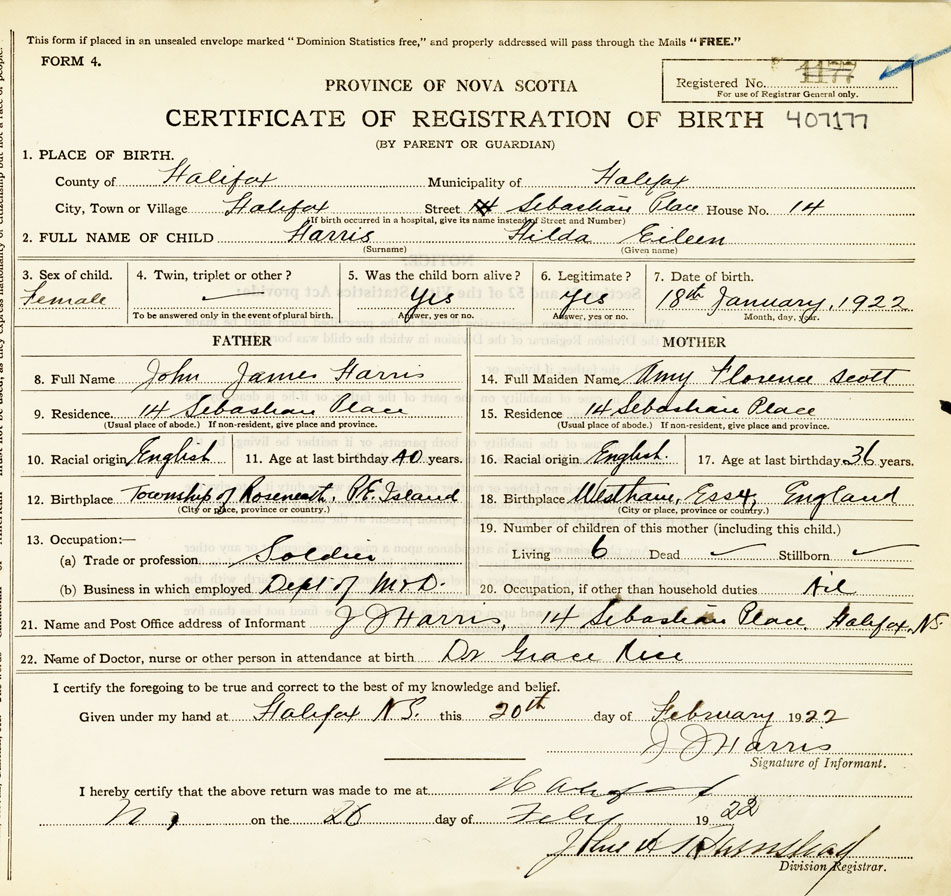 This form if placed in an unsealed envelope marked "Dominion Statistics free," and properly addressed will pass through the Mails "FREE."
FORM 4.
Registered No. 1177
For use of Registrar General only.
PROVINCE OF NOVA SCOTIA
CERTIFICATE OF REGISTRATION OF BIRTH 407177
(BY PARENT OR GUARDIAN)
1. PLACE OF BIRTH.
County of Halifax Municipality of Halifax
City, Town or Village Halifax Street Sebastian Place House No. 14
(If birth occurred in a hospital, give its name instead of Street and Number)
2. FULL NAME OF CHILD Harris Hilda Eileen
(Surname) (Given name)
3. Sex of child. 4. Twin, triplet or other? 5. Was the child born alive? 6. Legitimate? 7. Date of birth.
Female — Yes Yes 18th January, 1922
To be answered only in the event of plural birth. Answer, yes or no. Answer, yes or no. Month, day, year.
FATHER
8. Full Name John James Harris
9. Residence. 14 Sebastian Place
(Usual place of abode.) If non-resident, give place and province.
10. Racial origin English 11. Age at last birthday 40 years.
12. Birthplace Township of Roseneath, P.E. Island
(City or place, province or country.)
13. Occupation:—
(a) Trade or profession Soldier
(b) Business in which employed Dept of M&D.
MOTHER
14. Full Maiden Name Amy Florence Scott
15. Residence 14 Sebastian Place
(Usual place of abode.) If non-resident, give place and province.
16. Racial origin English. 17. Age at last birthday 36 years.
18. Birthplace Westham, Essx, England
(City or place, province or country.)
19. Number of children of this mother (including this child.)
Living 6 Dead — Stillborn —
20. Occupation, if other than household duties Nil
21. Name and Post Office address of Informant J J Harris, 14 Sebastian Place, Halifax, NS.
22. Name of Doctor, nurse or other person in attendance at birth Dr Grace Rice
I certify the foregoing to be true and correct to the best of my knowledge and belief.
Given under my hand at Halifax N.S. this 20th day of February 1922
J J Harris
Signature of Informant.
I hereby certify that the above return was made to me at Halifax
N.S. on the 20 day of Feby 1922
John A
Division Registrar.